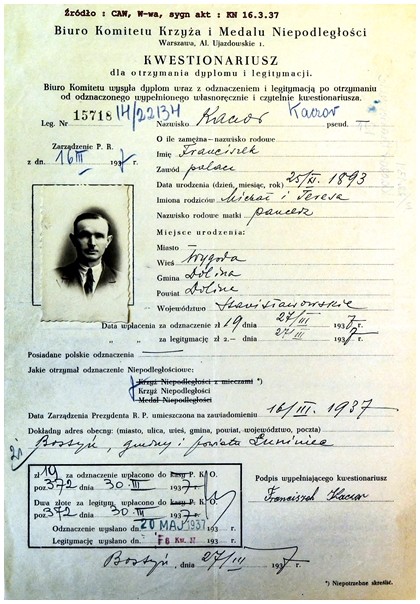 Źródło : CAW, W-wa, sygn akt : KN 16.3.37
Biuro Komitetu Krzyża i Medalu Niepodległości
Warszawa, Al. Ujazdowskie 1.
KWESTIONARIUSZ
dla otrzymania dyplomu i legitymacji.
Biuro Komitetu wysyła dyplom wraz z odznaczeniem i legitymacją po otrzymaniu
od odznaczonego wypełnionego własnoręcznie i czytelnie kwestionariusza.
Leg. Nr 15718 14/22134 Nazwisko Kaczor Kaczor pseud. —
O ile zamężna—nazwisko rodowe
Zarządzenie P. R. Imię Franciszek
z dn. 16 III 1937 r. Zawód palacz
Data urodzenia (dzień, miesiąc, rok) 25/XI. 1893
Imiona rodziców Michał i Teresa
Nazwisko rodowe matki pancerz
Miejsce urodzenia:
Miasto
Wieś Wygoda
Gmina Dolina
Powiat Dolina
Województwo Stanisławowskie
Data wpłacenia za odznaczenie zł 19 dnia 27/III 1937 r.
„ „ za legitymację zł 2.— dnia 27/III 1937 r.
Posiadane polskie odznaczenia —
Jakie otrzymał odznaczenie Niepodległościowe:
Krzyż Niepodległości z mieczami *)
Krzyż Niepodległości
Medal Niepodległości
Data Zarządzenia Prezydenta R. P. umieszczona na zawiadomieniu 16/III. 1937
Dokładny adres obecny: (miasto, ulica, wieś, gmina, powiat, województwo, poczta)
Bostyń, gminy i powiatu Łuniniec
zł 19 za odznaczenie wpłacono do kasy P. K. O.
poz 372 dnia 30 III 1937 r.
Dwa złote za legitym. wpłacono do kasy P. K. O.
poz 372 dnia 30 III 193 r.
Odznaczenie wysłano dn. 20 MAJ 1937 193 r.
Legitymację wysłano dn. 193 r.
Podpis wypełniającego kwestionariusz
Franciszek Kaczor
Bostyń, dnia 27/III 1937 r.
*) Niepotrzebne skreślić.